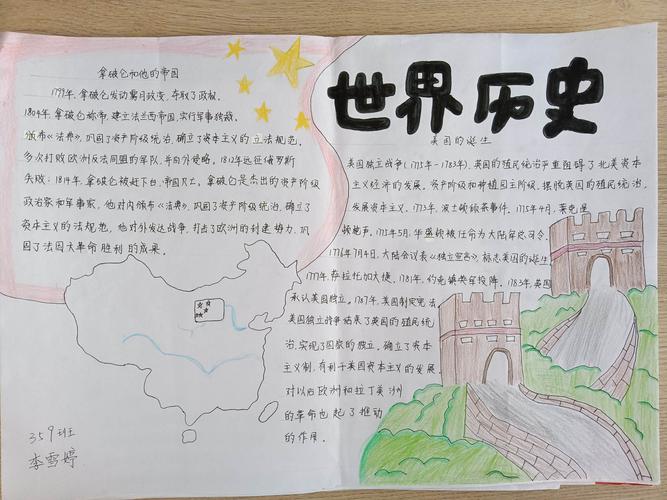 世界历史
拿破仑和他的帝国
1799年,拿破仑发动雾月政变,夺取了政权。
1804年,拿破仑称帝,建立法兰西帝国,实行军事独裁。
颁布《法典》,巩固了资产阶级统治,确立了资本主义的立法规范,
多次打败欧洲反法同盟的军队,并向外侵略,1812年远征俄罗斯
失败;1814年,拿破仑被赶下台,帝国灭亡,拿破仑是杰出的资产阶级
政治家和军事家,他对内颁布《法典》,巩固了资产阶级统治,确立了
资本主义的法规范,他对外发达战争,打击了欧洲的封建势力,巩
固了法国大革命胜利的成果。
359班
李雪婷
美国的诞生
美国独立战争(1775年-1783年),英国的殖民统治严重阻碍了北美资本
主义经济的发展,资产阶级和种植园主阶级,摆脱英国的殖民统治,
发展资本主义。1773年,波士顿倾茶事件。1775年4月,莱克星
顿枪声。1775年5月,华盛顿被任命为大陆军总司令,
1776年7月4日,大陆会议表《独立宣言》,标志美国的诞生
1777年,萨拉托加大捷。1781年,约克镇英军投降。1783年,英国
承认美国独立。1787年,美国制宪宪法
美国独立战争结束了英国的殖民统
治,实现了国家的独立。确立了资本
主义制,有利于美国资本主义的发展,
对以后欧洲和拉丁美洲
的革命也起了推动
的作用。